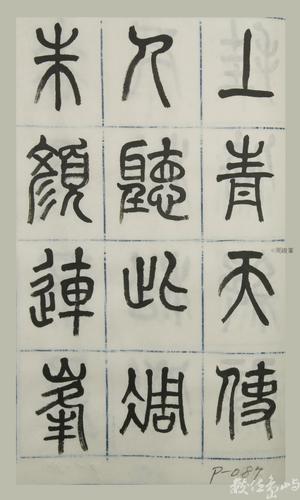 上青天使
人聽此凋
朱顏連峯
P-087
數位島嶼